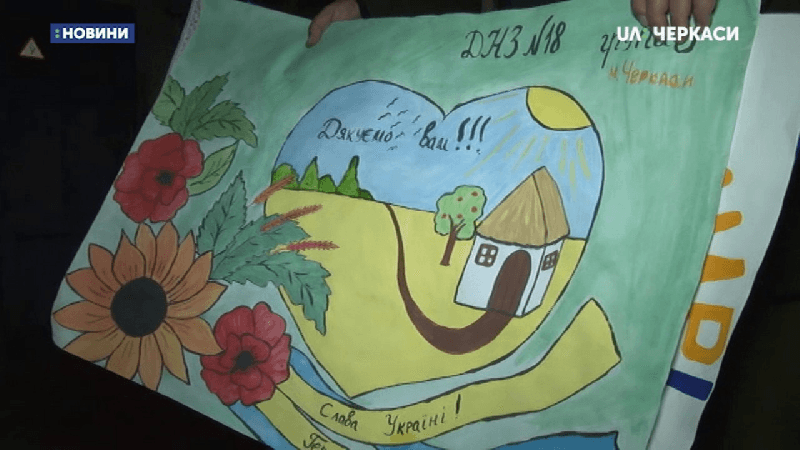 :НОВИНИ
UA: ЧЕРКАСИ
ДНЗ №18
м. Черкаси
Дякуємо вам!!!
Слава Україні!